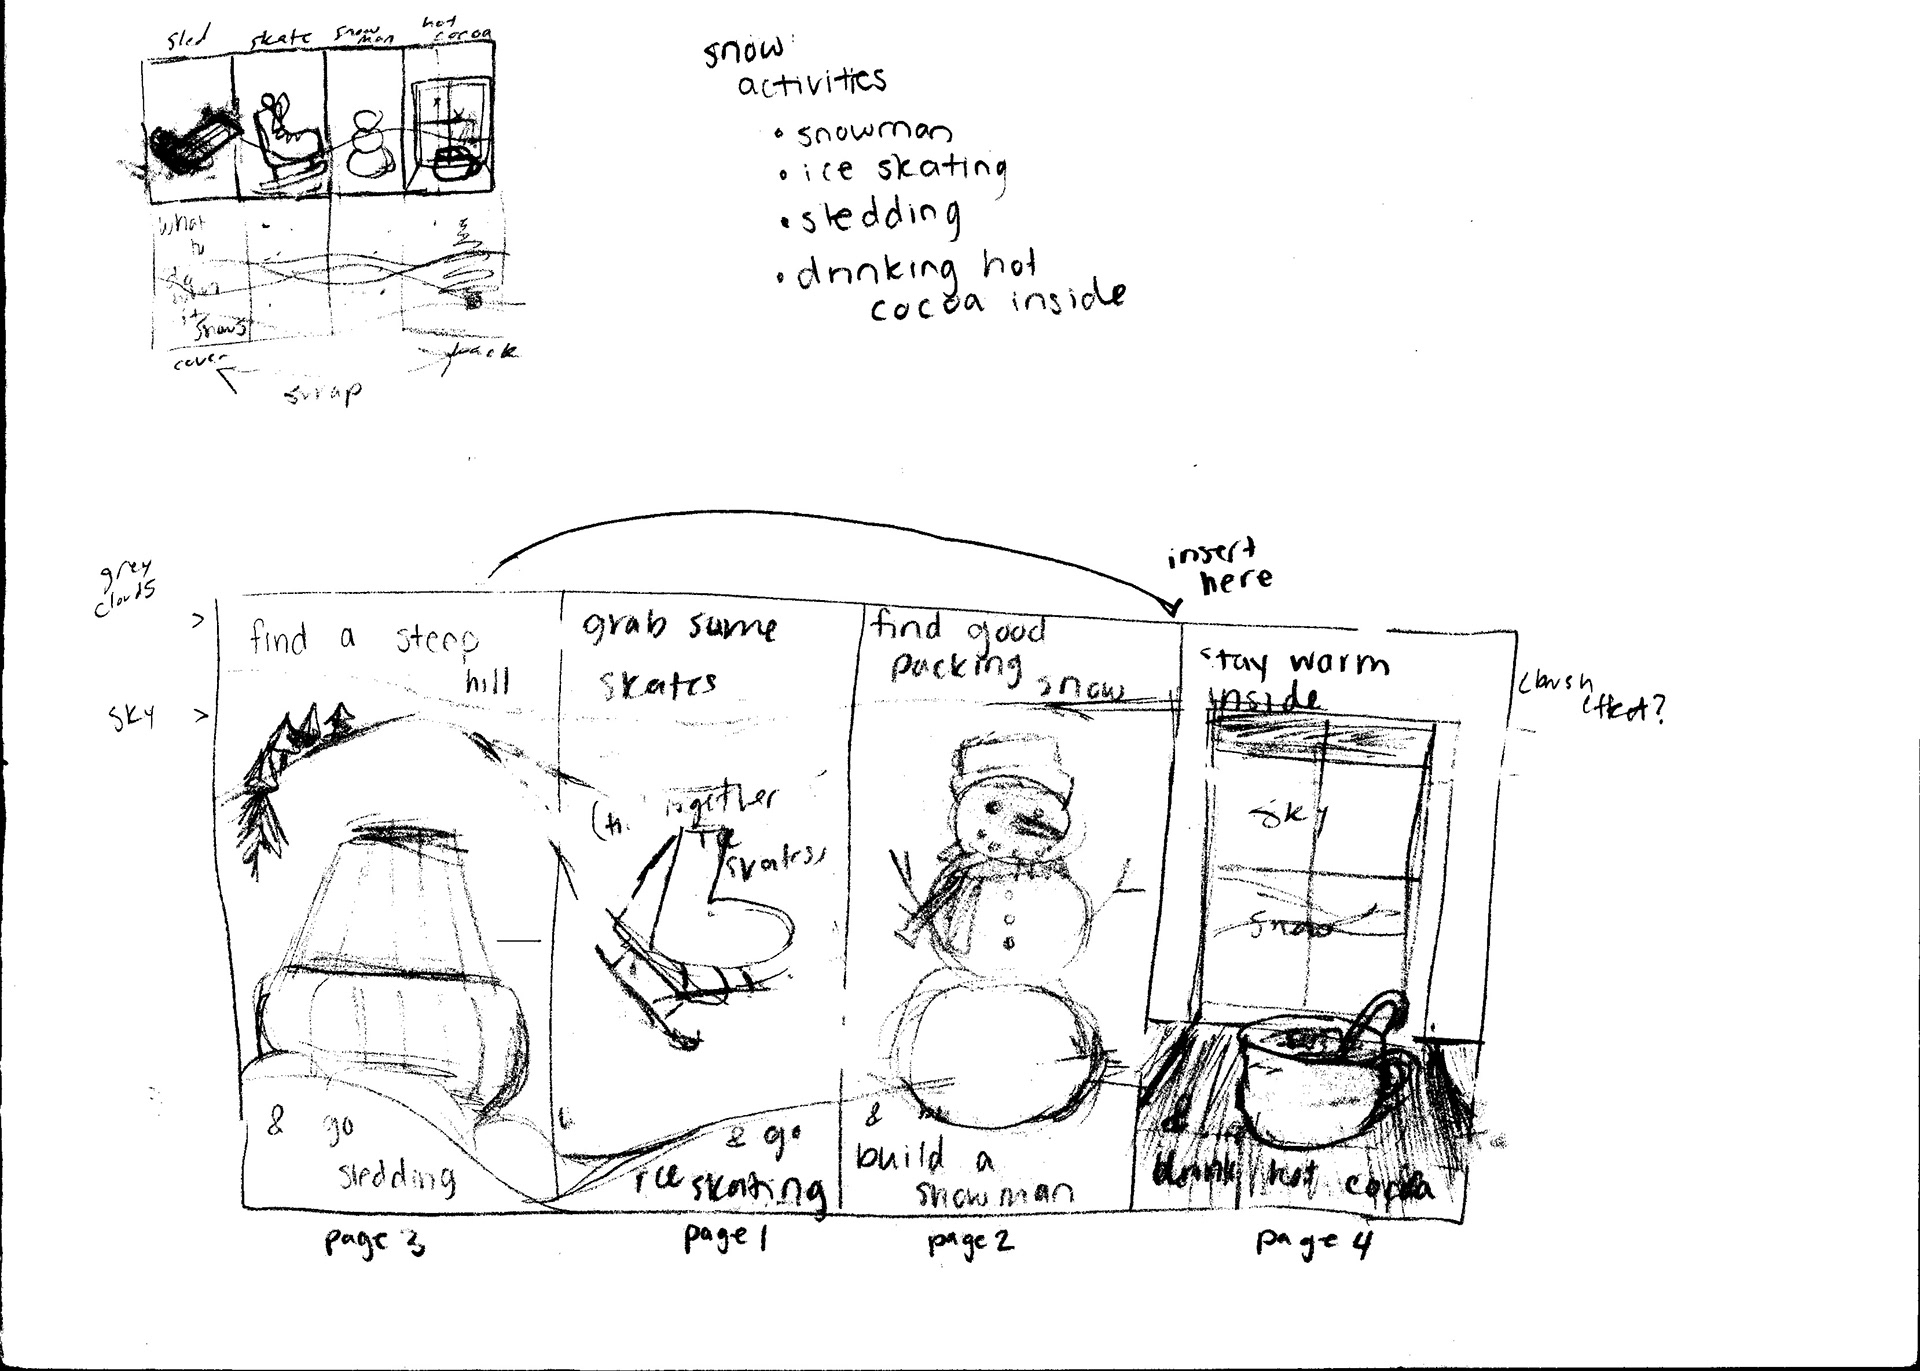 sled skate snow man hot cocoa
what
to
do
when
it
snows
cover
back
swap
snow
activities
• snowman
• ice skating
• sledding
• drinking hot
cocoa inside
insert
here
grey
clouds >
sky >
find a steep
hill
& go
sledding
page 3
grab some
skates
together
skates
& go
ice skating
page 1
find good
packing
snow
&
build a
snowman
page 2
stay warm
inside
sky
snow
&
drink hot cocoa
page 4
(brush
effect?